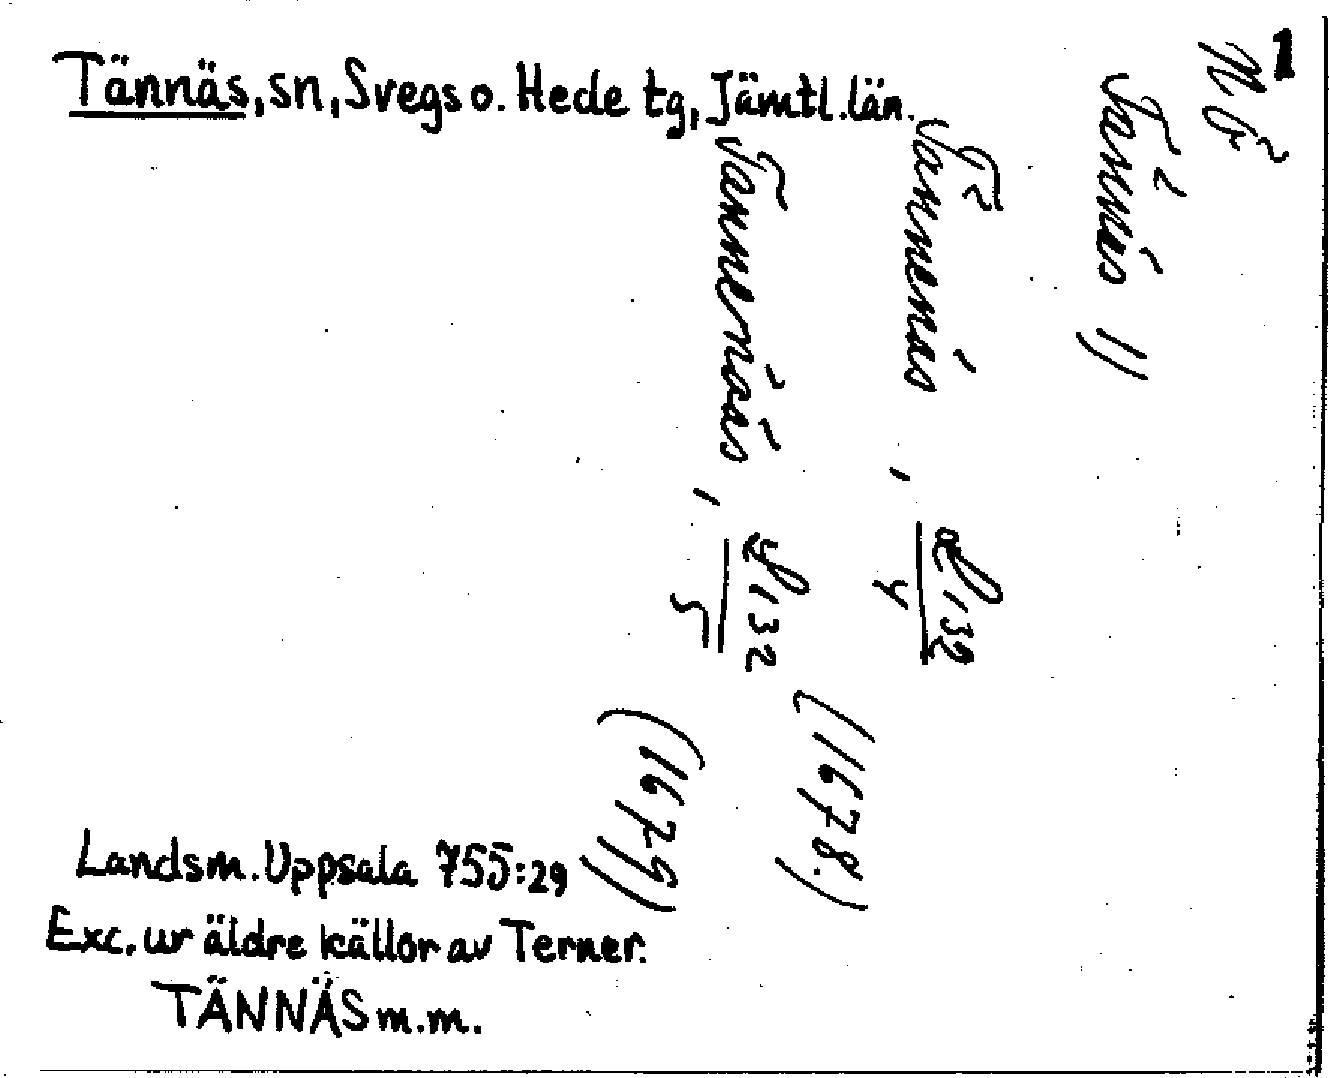 Tännäs, sn, Svegs o. Hede tg, Jämtl. län.
1
Tännäs 1)
Tännenäs, 132
4
(1678.)
Tännernäs, 132
5
(1679)
Landsm. Uppsala 755:29
Exc. ur äldre källor av Terner.
TÄNNÄS m.m.